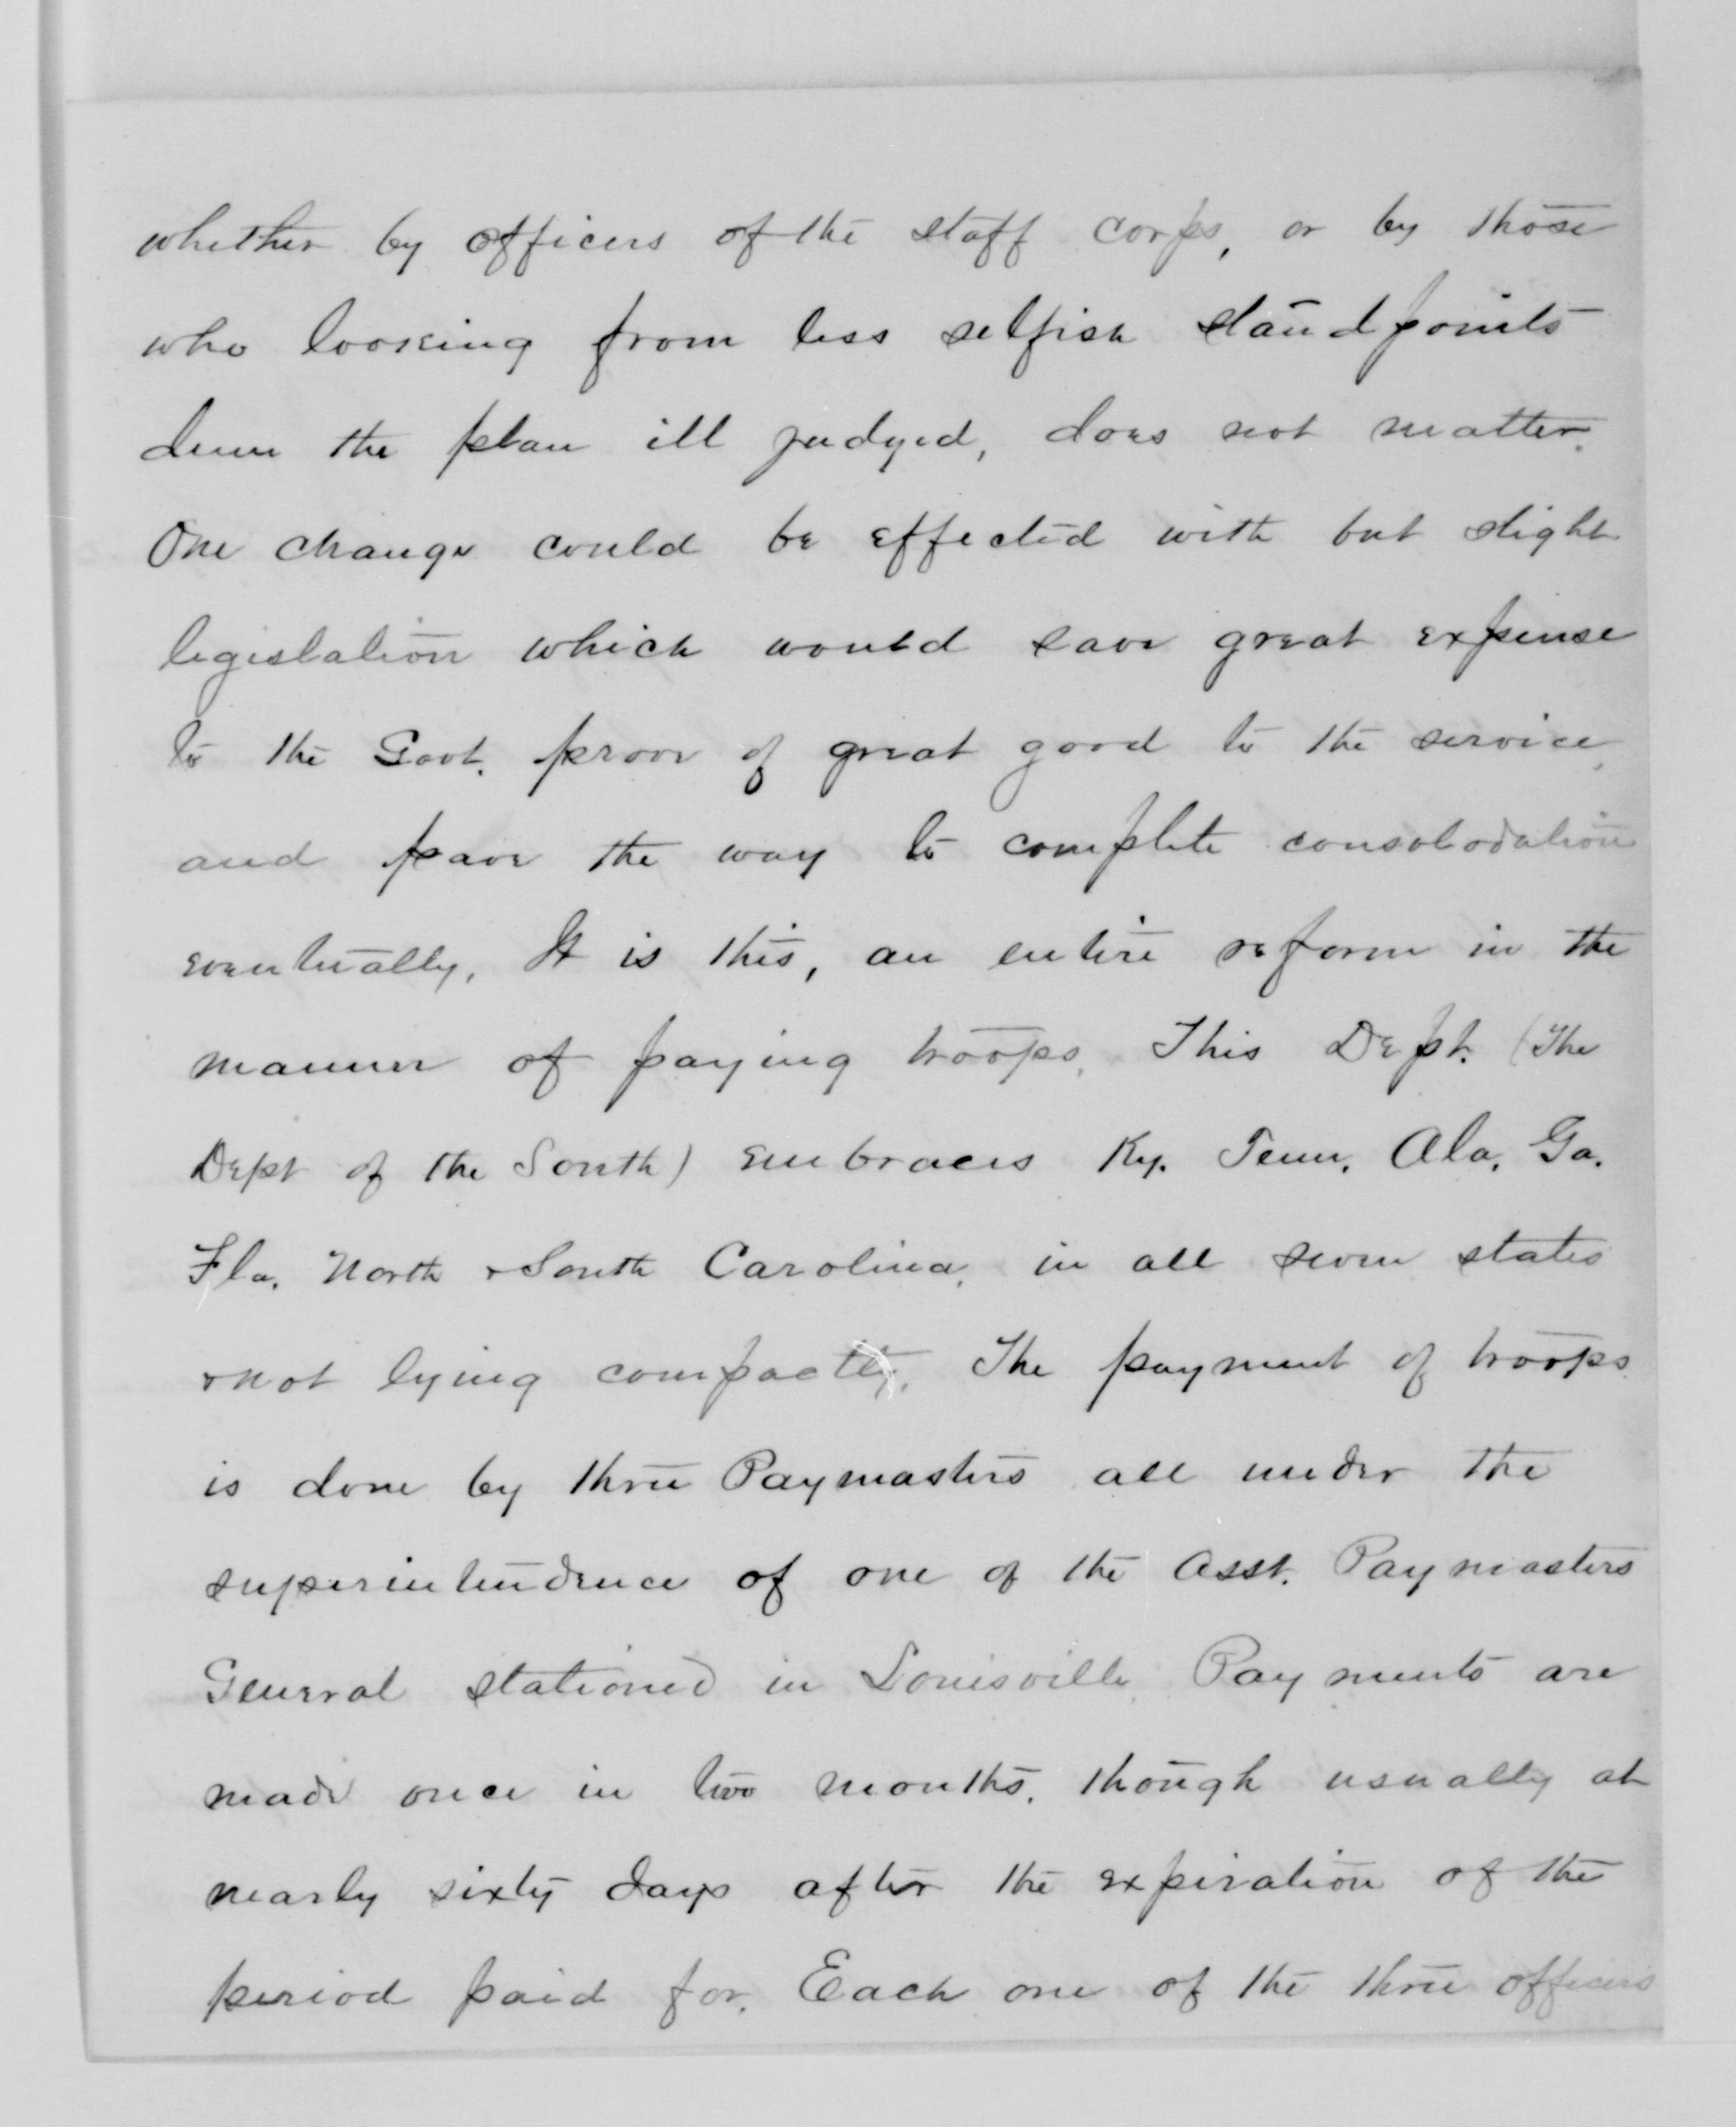 whether by officers of the staff corps, or by those
who looking from less selfish standpoints
deem the plan ill judged, does not matter.
One change could be effected with but slight
legislation which would save great expense
to the Govt. prove of great good to the service,
and pave the way to complete consolodation
eventually. It is this, an entire reform in the
manner of paying troops. This Dept. (The
Dept of the South) embraces Ky. Tenn. Ala. Ga.
Fla. North & South Carolina, in all seven states
& not lying compactly. The payment of troops
is done by three Paymasters all under the
superintendence of one of the Asst. Paymasters
General stationed in Louisville. Payments are
made once in two months, though usually at
nearly sixty days after the expiration of the
period paid for. Each one of the three officers